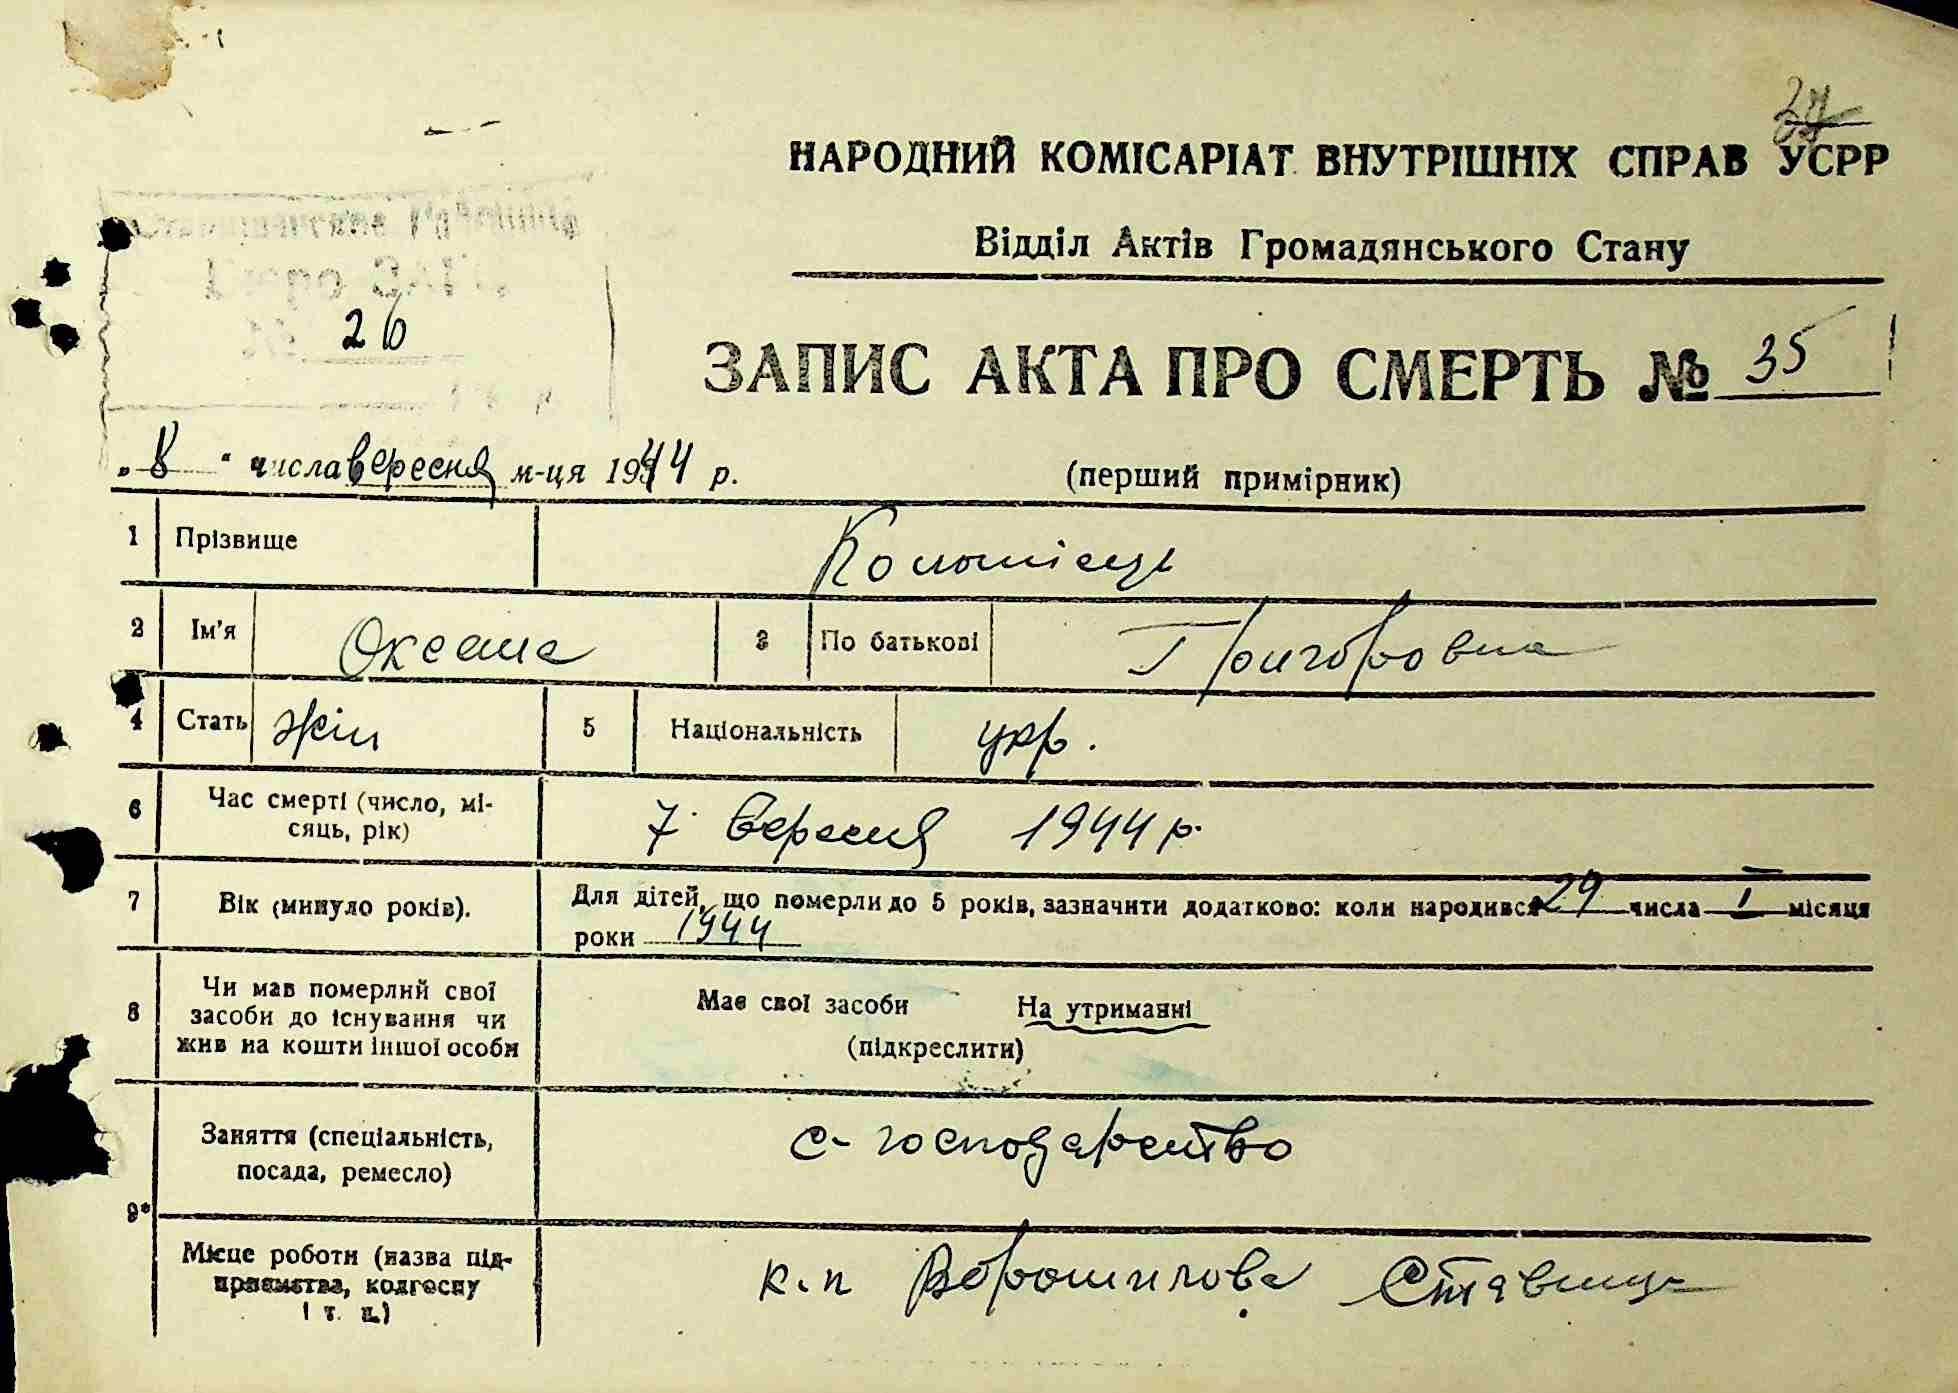 37
НАРОДНИЙ КОМІСАРІАТ ВНУТРІШНІХ СПРАВ УСРР
Відділ Актів Громадянського Стану
Бюро ЗАГС
№ 26
ЗАПИС АКТА ПРО СМЕРТЬ № 35
„8“ числа вересня м-ця 1944 р.
(перший примірник)
1 Прізвище Коломієць
2 Ім'я Оксана 3 По батькові Григоровна
4 Стать жін 5 Національність укр.
6 Час смерті (число, мі-
сяць, рік) 7 вересня 1944 р.
7 Вік (минуло років). Для дітей, що померли до 5 років, зазначити додатково: коли народився 29 числа I місяця
роки 1944
8 Чи мав померлий свої
засоби до існування чи
жив на кошти іншої особи
Має свої засоби На утриманні
(підкреслити)
Заняття (спеціальність,
посада, ремесло) с-господарство
9*
Місце роботи (назва під-
приємства, колгоспу
і т. п.) к-п Ворошилова Ставище